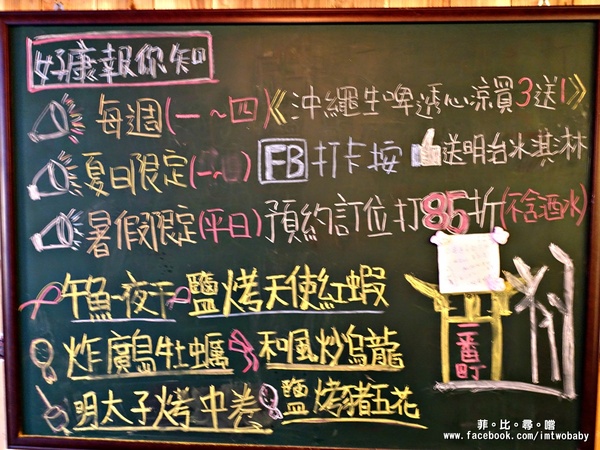 好康報你知
每週(一~四)《沖繩生啤透心涼買3送1》
夏日限定(一 FB打卡按 送明治冰淇淋
暑假限定(平日)預約訂位打85折(不含酒水)
午魚一夜干 鹽烤天使紅蝦
炸廣島牡蠣 和風炒烏龍
明太子烤中卷 鹽烤豬五花
一番町
菲。比。尋。嚐
www.facebook.com/imtwobaby